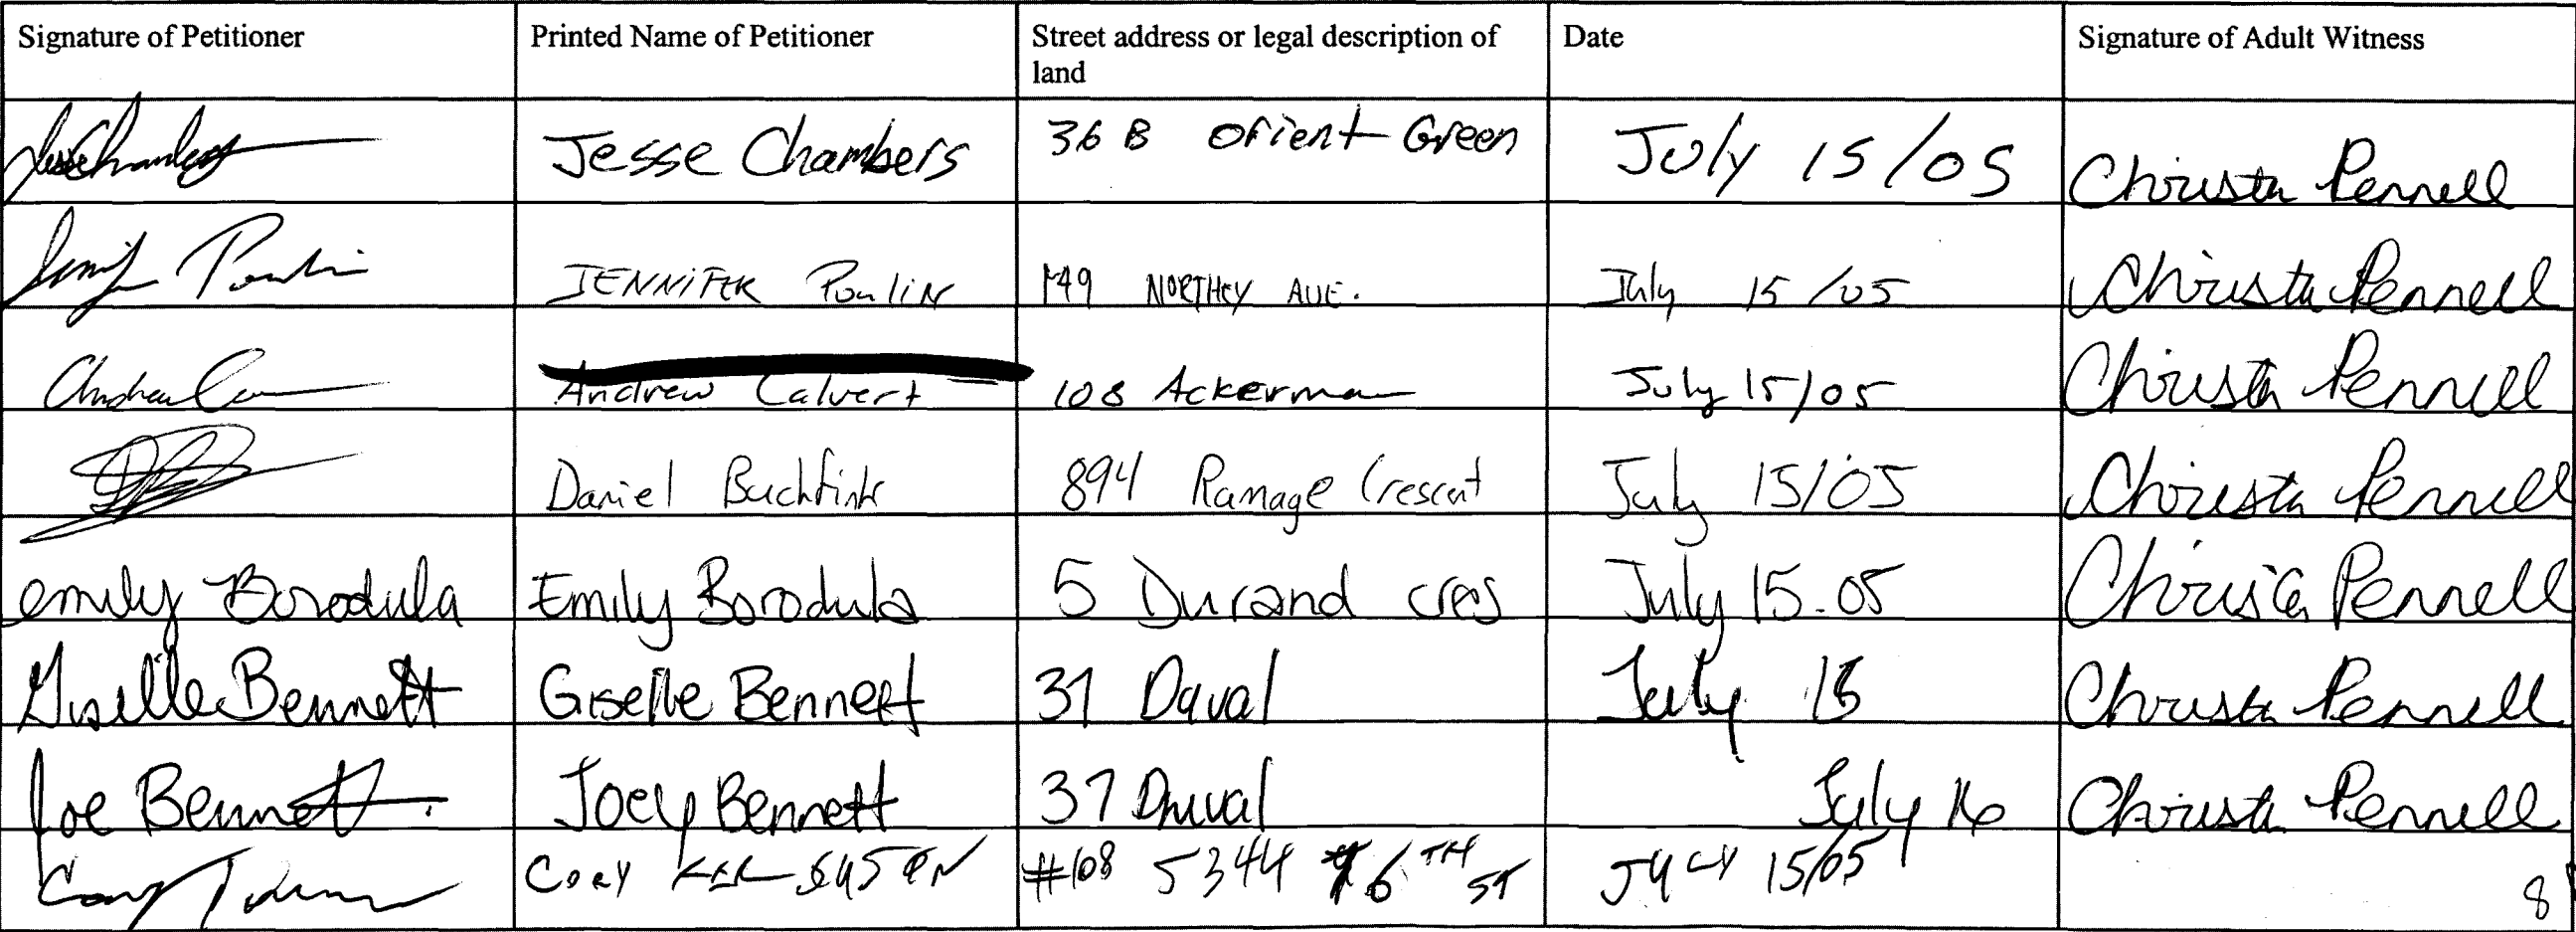 Signature of Petitioner Printed Name of Petitioner Street address or legal description of land Date Signature of Adult Witness
Jesse Chambers 36 B Orient Green July 15/05 Christa Pennell
JENNIFER Poulin 149 NORTHEY AVE. July 15/05 Christa Pennell
Andrew Calvert 108 Ackerman July 15/05 Christa Pennell
Daniel Buchfink 894 Ramage Crescent July 15/05 Christa Pennell
emily Borodula Emily Borodula 5 Durand cres July 15.05 Christa Pennell
Giselle Bennett Giselle Bennett 37 Duval July 15 Christa Pennell
Joe Bennett Joey Bennett 37 Duval July 16 Christa Pennell
Cory #108 5344 76TH ST JULY 15/05
8